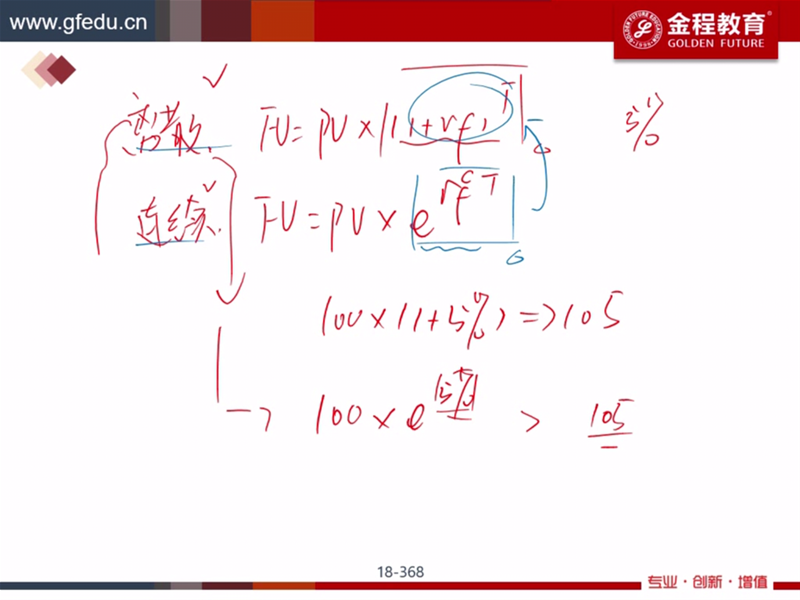 www.gfedu.cn
金程教育
GOLDEN FUTURE
离散 FV = PV × (1 + rf)^T 5%
连续 FV = PV × e^{rf^c T}
100 × (1 + 5%) => 105
-> 100 × e^{5%} > 105
18-368
专业·创新·增值